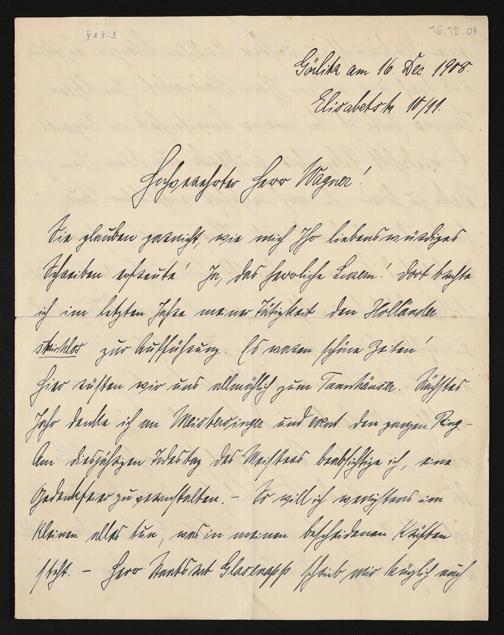 16.12.08
Görlitz am 16. Dec 1908.
Elisabetstr. 10/11.
Hochverehrter Herr Wagner!
Sie glauben garnicht, wie mich Ihr liebenswürdiges
Schreiben erfreute! Ja, das herrliche Luzern! Dort brachte
ich im letzten Jahre meiner Tätigkeit den Holländer
strichlos zur Aufführung. Es waren schöne Zeiten!
Hier rüsten wir uns allmählich zum Tannhäuser. Nächstes
Jahr denke ich an Meistersinger und den ganzen Ring.
Am diesjährigen Todestag des Meisters beabsichtige ich, eine
Gedenkfeier zu veranstalten. – So will ich wenigstens im
kleinen alles tun, was in meinen bescheidenen Kräften
steht. – Herr Glasenapp schrieb mir kürzlich auch